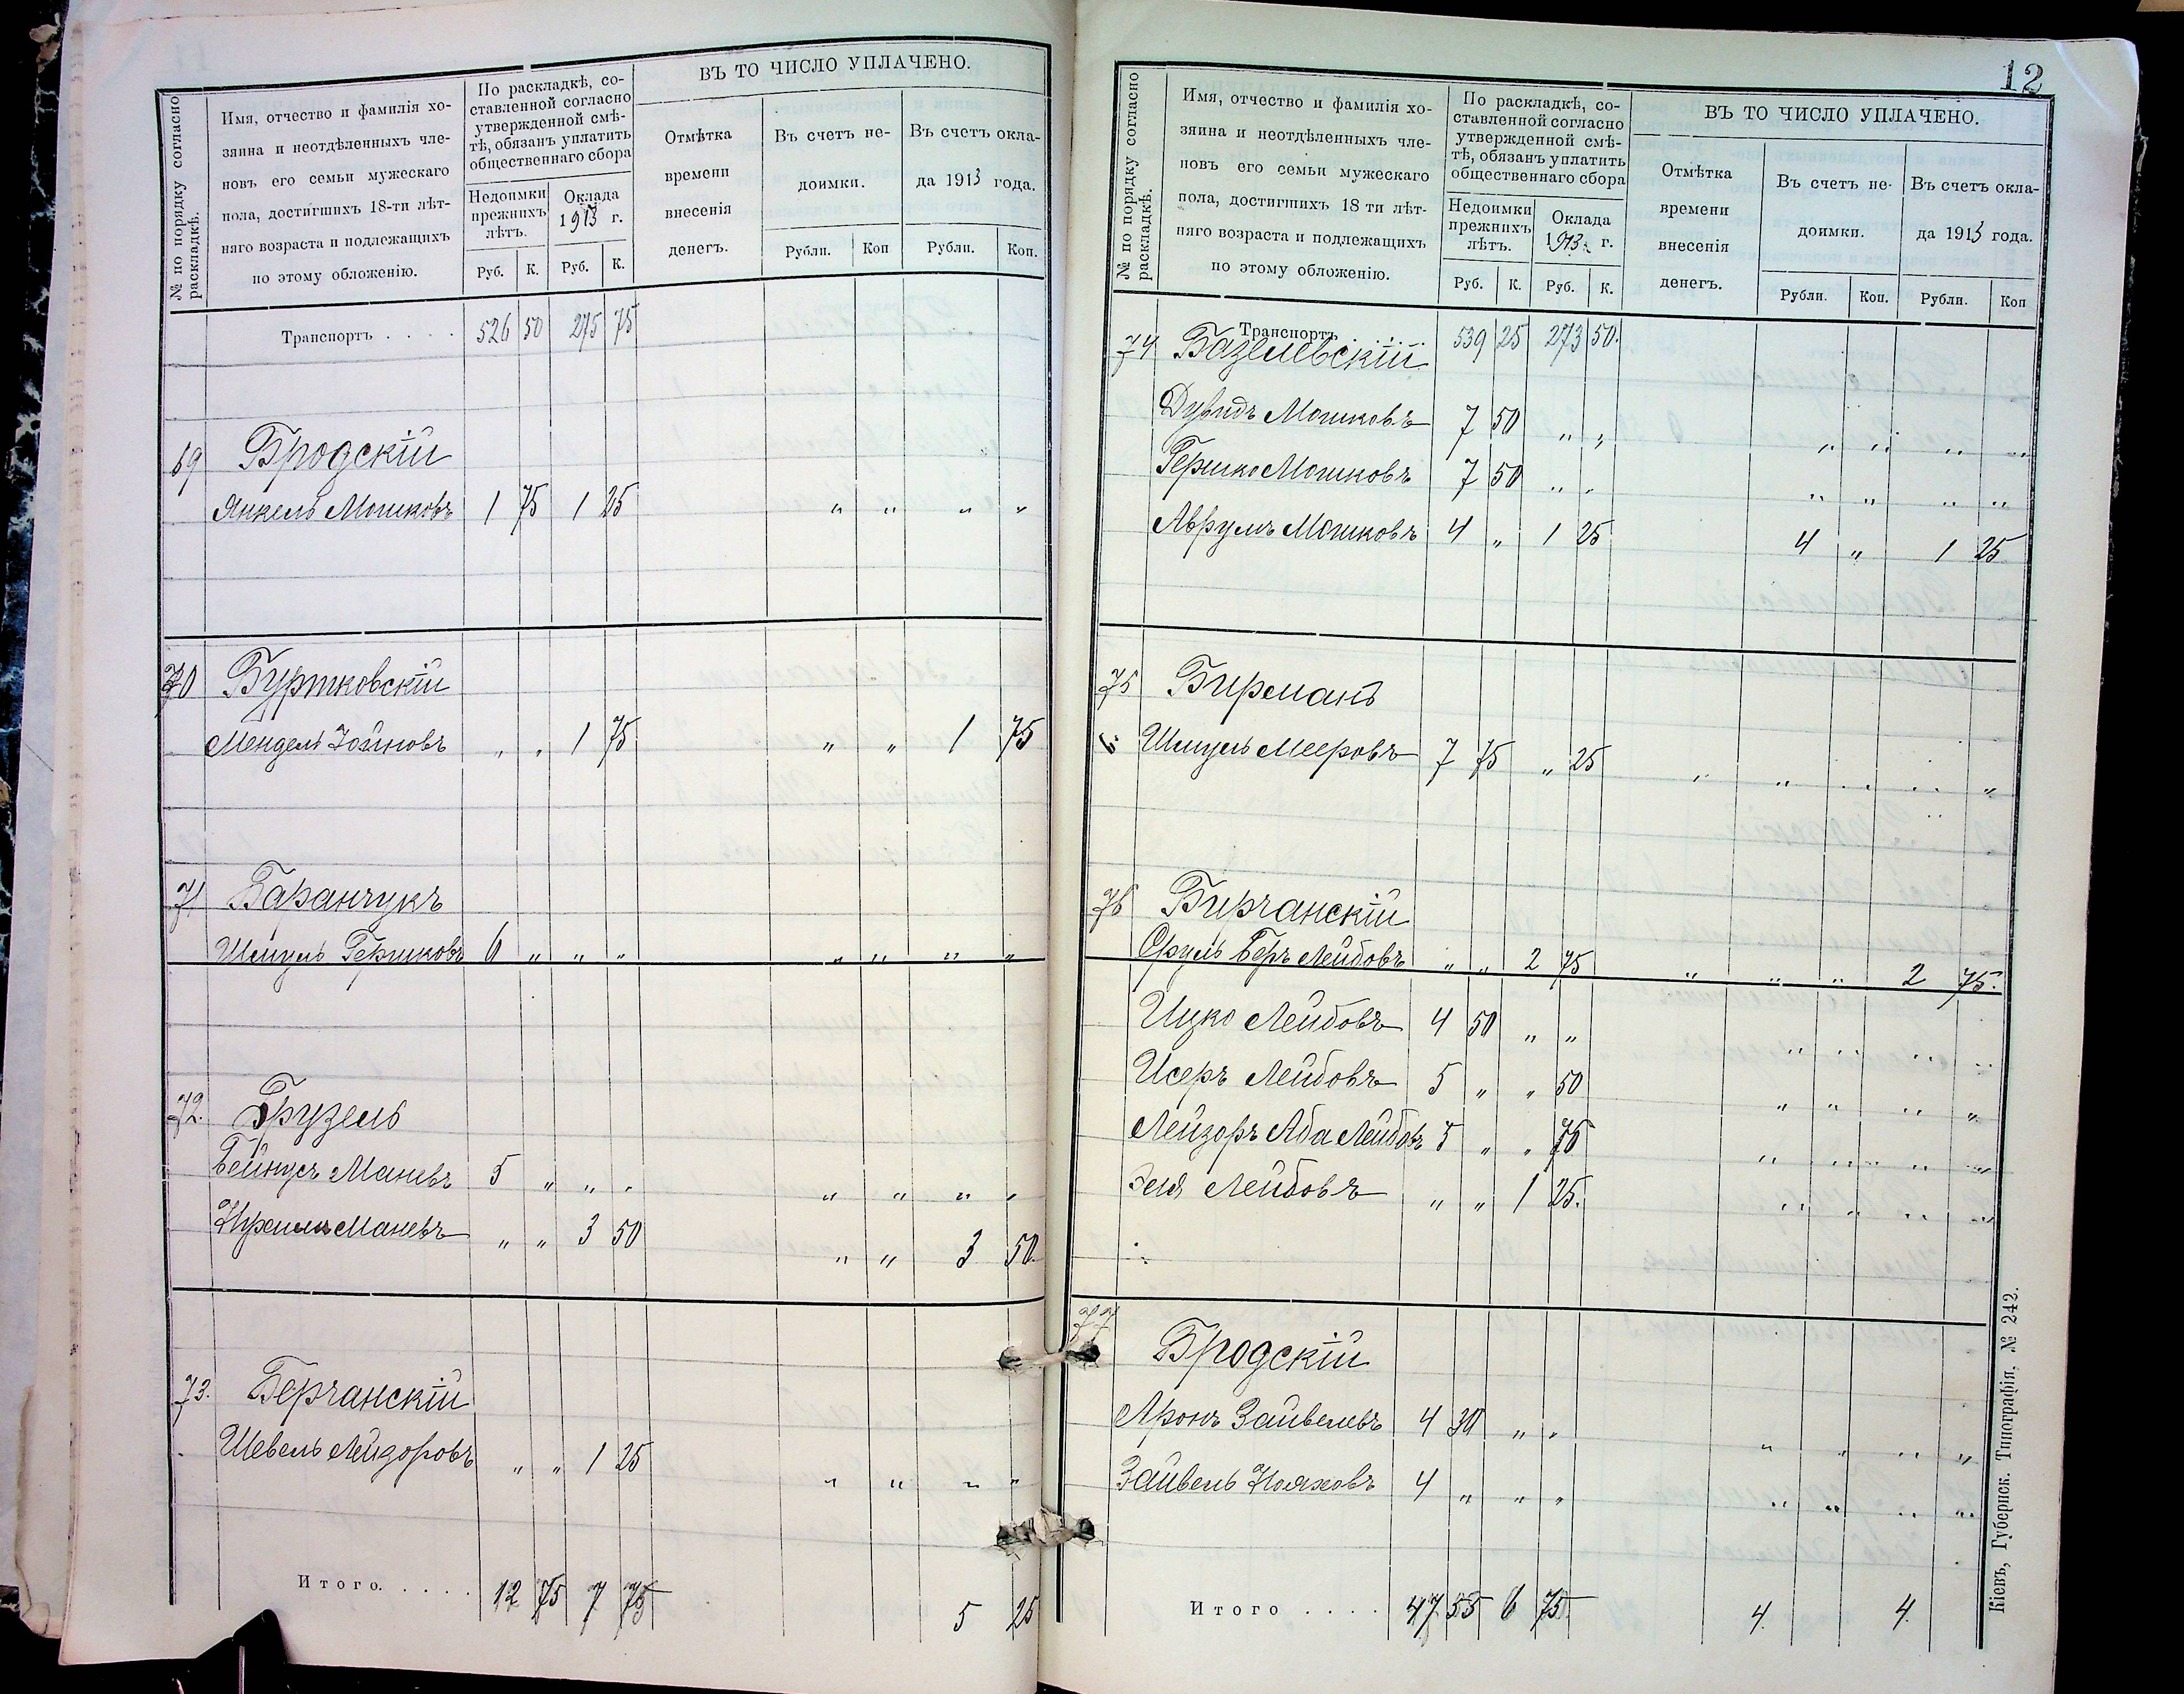 № по порядку согласно раскладкѣ.
Имя, отчество и фамилія хо-
зяина и неотдѣленныхъ чле-
новъ его семьи мужескаго
пола, достигшихъ 18-ти лѣт-
няго возраста и подлежащихъ
по этому обложенію.
По раскладкѣ, со-
ставленной согласно
утвержденной смѣ-
тѣ, обязанъ уплатить
общественнаго сбора
Недоимки прежнихъ лѣтъ.
Оклада 1913 г.
Руб. К. Руб. К.
ВЪ ТО ЧИСЛО УПЛАЧЕНО.
Отмѣтка
времени
внесенія
денегъ.
Въ счетъ не-
доимки.
Въ счетъ окла-
да 1913 года.
Рубли. Коп Рубли. Коп.
Транспортъ . . . . 526 50 275 75
69 Бродскій
Янкель Мошковъ 1 75 1 25 „ „ „ „
70 Буртковскій
Мендель Іойновъ „ „ 1 75 „ „ 1 75
71 Баранчукъ
Шмуль Гершковъ 6 „ „ „ „ „ „ „
72. Брузель
Бейнусъ Маневъ 5 „ „ „ „ „ „ „
Маневъ „ „ 3 50 „ „ 3 50
73. Берчанскій
Шевель Лейзоровъ „ „ 1 25 „ „ „ „
Итого. . . . . 12 75 7 75 5 25
12
№ по порядку согласно раскладкѣ.
Имя, отчество и фамилія хо-
зяина и неотдѣленныхъ чле-
новъ его семьи мужескаго
пола, достигшихъ 18 ти лѣт-
няго возраста и подлежащихъ
по этому обложенію.
По раскладкѣ, со-
ставленной согласно
утвержденной смѣ-
тѣ, обязанъ уплатить
общественнаго сбора
Недоимки прежнихъ лѣтъ.
Оклада 1913 г.
Руб. К. Руб. К.
ВЪ ТО ЧИСЛО УПЛАЧЕНО.
Отмѣтка
времени
внесенія
денегъ.
Въ счетъ не-
доимки.
Въ счетъ окла-
да 1913 года.
Рубли. Коп. Рубли. Коп
Транспортъ . . . . 539 25 273 50.
74 Базелевскій
Дувидъ Мошковъ 7 50 „ „ „ „ „ „
Гершко Мошковъ 7 50 „ „ „ „ „ „
Аврумъ Мошковъ 4 „ 1 25 4 „ 1 25
75 Бирманъ
Шмуль Мееровъ 7 75 „ 25 „ „ „ „ „
76 Бирчанскій
Сруль Беръ Лейбовъ „ „ 2 75 „ „ „ 2 75.
Ицко Лейбовъ 4 50 „ „ „ „ „ „
Исеръ Лейбовъ 5 „ „ 50 „ „ „ „
Лейзоръ Аба Лейбовъ 5 „ „ 75 „ „ „ „
Лейбовъ „ „ 1 25. „ „ „ „
77
Бродскій
Аронъ Зайвелевъ 4 30 „ „ „ „ „ „
Зайвель 4 „ „ „ „ „ „ „
Итого . . . . 47 55 6 75. 4. 4.
Кіевъ, Губернск. Типографія, № 242.